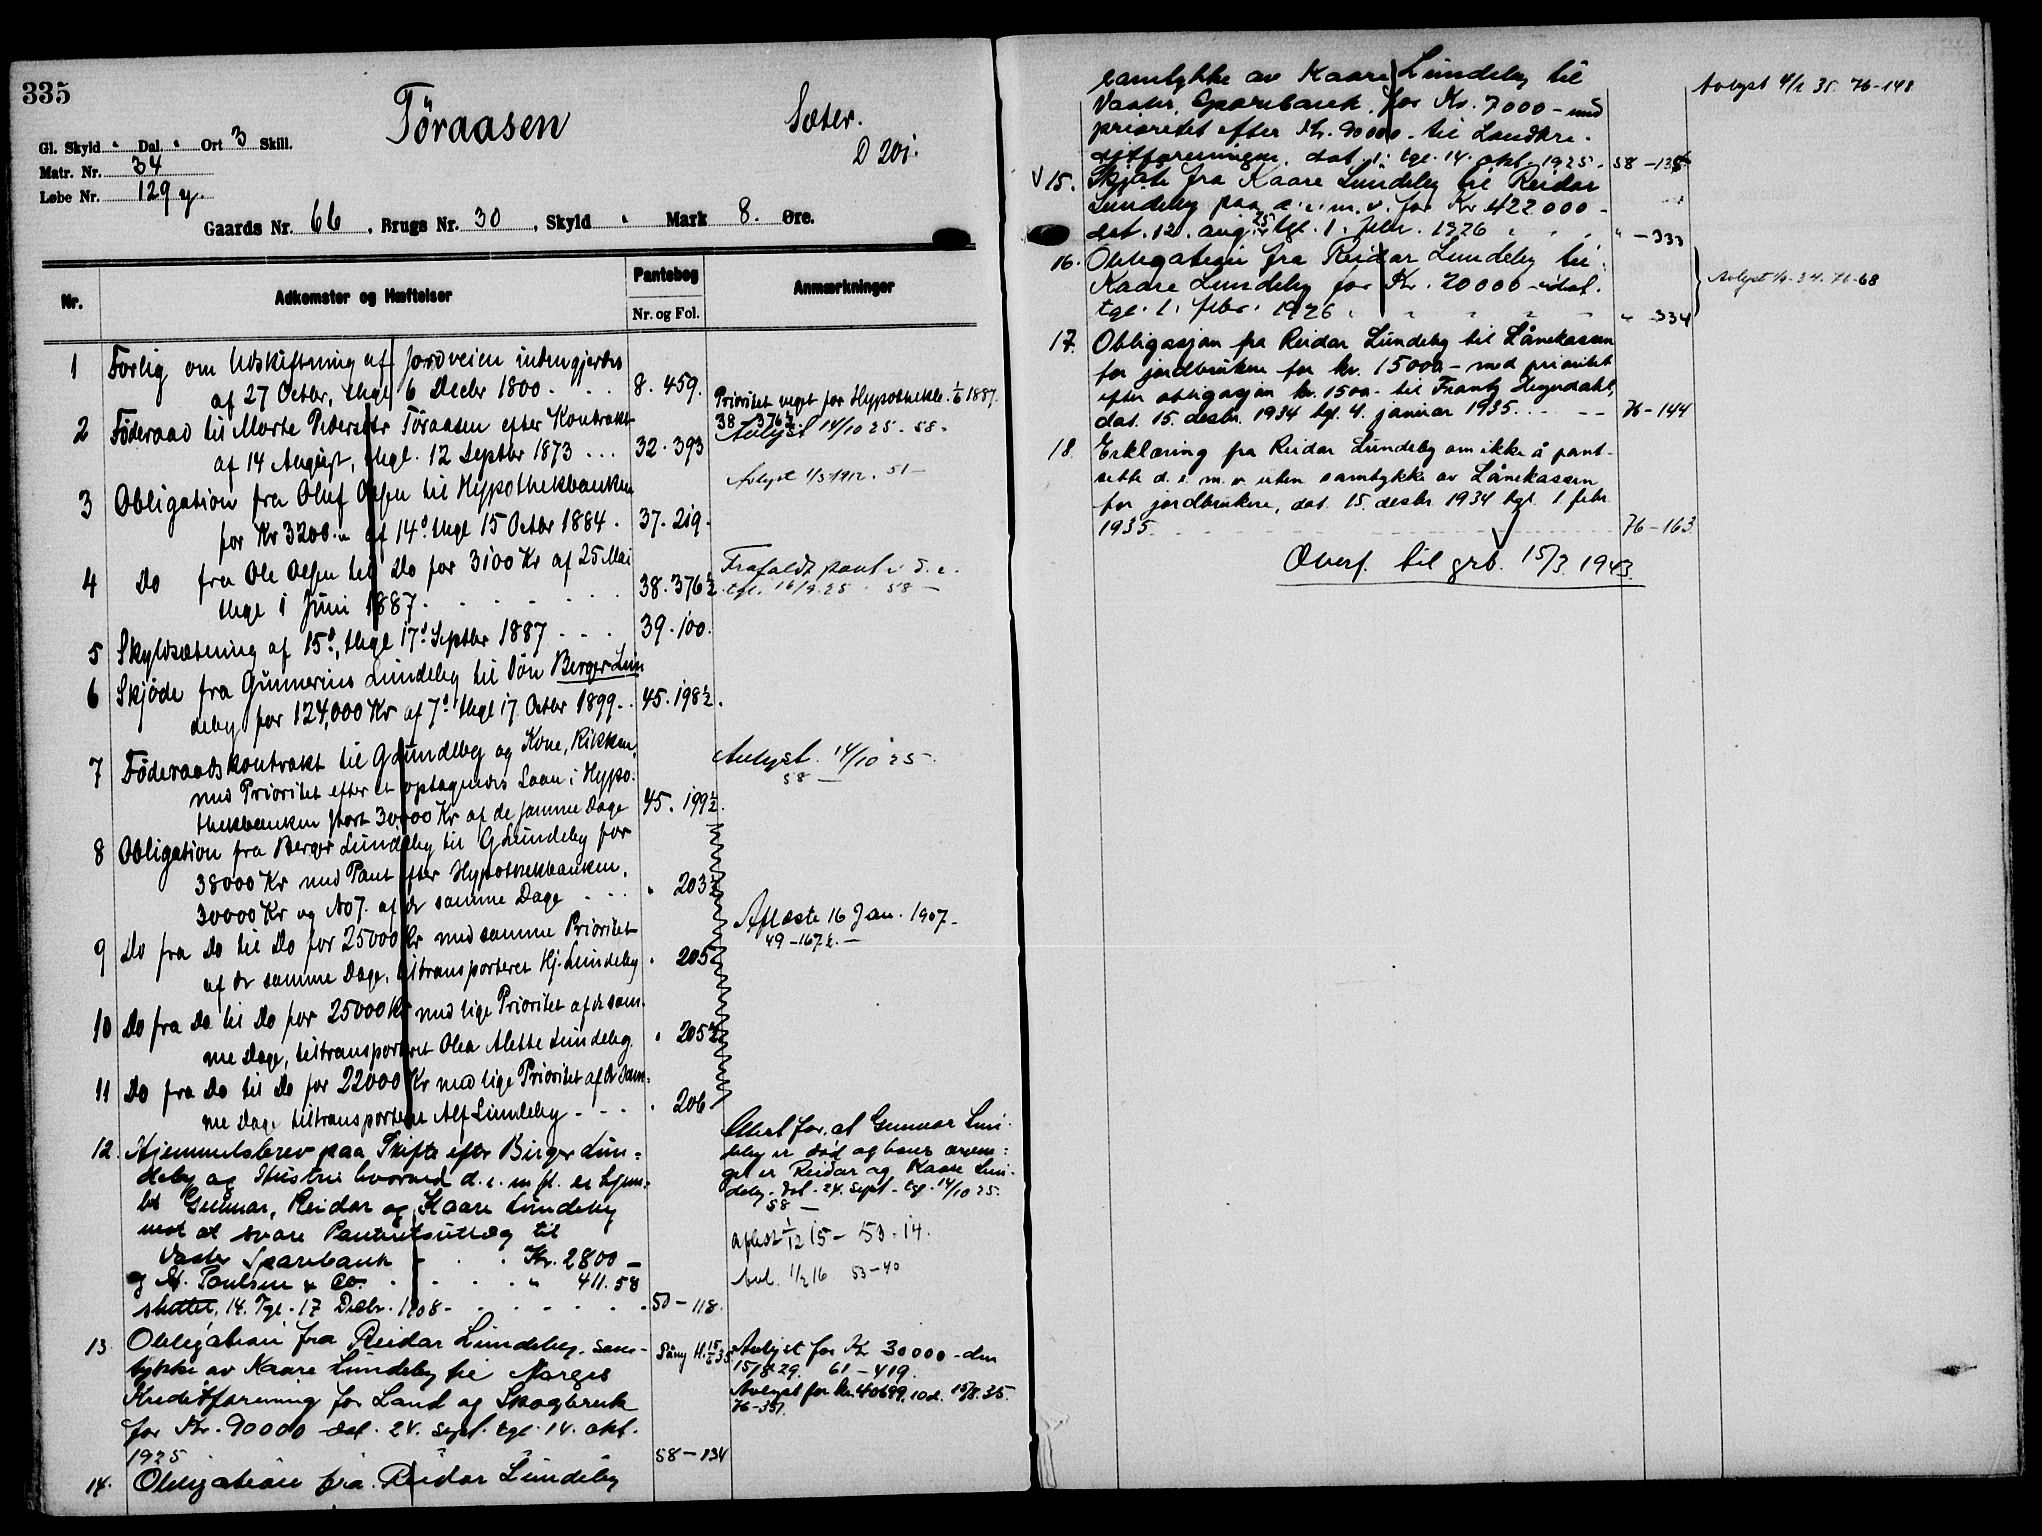 335
Töraasen
Sæter.
D 201.
Gl. Skyld " Dal. " Ort 3 Skill.
Matr. Nr. 34
Løbe Nr. 129 y.
Gaards Nr. 66, Brugs Nr. 30, Skyld " Mark 8. Øre.
Nr.
Adkomster og Hæftelser
Pantebog
Nr. og Fol.
Anmærkninger
1 Forlig om Udskiftning af Jordveien indengjerdes
af 27 Octbr, thgl 6 Decbr 1800 . . . 8. 459.
2 Föderaad til Marte Pedersdtr Töraasen efter Kontrakt
af 14 August, thgl. 12 Septbr 1873 ... 32. 393
Prioritet veget for Hypothekbk. 1/6 1887.
38 - 376 1/2.
Avlyst 14/10 25. 58 -
3 Obligation fra Oluf Olsen til Hypothekbanken
for Kr 3200. - af 14d thgl 15 Octbr 1884 . 37. 219.
Avlyst 1/3 1912. 51 -
4 Do fra Ole Olsen til Do for 3100 Kr af 25 Mai
thgl 1 Juni 1887. . . . 38. 376 1/2
Frafaldt pant i d. e.
tgl. 16/9 25 . 58 -
5 Skyldsætning af 15d, thgl 17d Septbr 1887 . . . 39. 100.
6 Skjöde fra Gunnerius Lundeby til Sön Berger Lun
deby for 124,000 Kr af 7d thgl 17 Octbr 1899. . 45. 198 1/2.
7 Föderaadskontrakt til G Lundeby og Kone, Rikken,
med Prioritet efter et optagendes Laan i Hypo-
thekbanken stort 30000 Kr af de samme Dage 45. 199 1/2.
Avlyst. 14/10 25.
58 -
8 Obligation fra Berger Lundeby til G Lundeby for
38000 Kr med Pant efter Hypothekbanken,
30000 Kr og No 7. af de samme Dage . . . " 203 1/2
9 Do fra Do til Do for 25000 Kr med samme Prioritet
af de samme Dage, tiltransporteret Hj. Lundeby " 205
Aflæste 16 Jan. 1907 -
49 - 167 1/2. -
10 Do fra Do til Do for 25000 Kr med lige Prioritet af de sam-
me Dage, tiltransporteret Olea Alette Lundeby. " 205 1/2
11 Do fra Do til Do for 22000 Kr med lige Prioritet af de sam-
me Dage tiltransporteret Alf Lundeby - - - " 206
12. Hjemmelsbrev paa Skifte efter Birger Lun=
deby og Hustru hvorved d. e. m fl. er hjem=
let Gunnar, Reidar og Kaare Lundeby
mot at svare Panteutlæg til
Vaaler Sparebank - . . Kr. 2800 -
og M. Poulsen & Co. . . . " 411. 58
sluttet, 14. Tgl. 17 Decbr. 1908 - . . . 50 - 118.
Attest for at Gunnar Lun-
deby er död og hans arvin=
ger er Reidar og Kaare Lun-
deby. dat. 24. sept. tgl. 14/10 25.
58 -
aflæst 1/12 15 - 53 - 14.
Avl. 1/2 16 53 - 40
13. Obligation fra Reidar Lundeby, sam-
tykke av Kaare Lundeby til Norges
Kreditforening for Land og Skogbruk
for Kr. 90000 dat. 24. sept. tgl. 14. okt.
1925 58 - 134
Avlyst for Kr 30000 - den
15/8 29. 61 - 419.
Avlyst for kr. 40699.10 d. 15/8. 35.
76 - 351.
14. Obligation fra Reidar Lundeby
samtykke av Kaare Lundeby til
Vaaler Sparebank for Kr. 7000 - med
prioritet efter Kr. 90000 - til Landkre-
ditforeningen, dat. i. tgl. 14. okt. 1925 - 58 - 135
Avlyst 4/1 35. 76 - 148
V 15. Skjöte fra Kaare Lundeby til Reidar
Lundeby paa d. e. m. v. for Kr 422000 -
dat. 12. aug 25 tgl. 1. febr. 1926 . . . " - 333
16. Obligation fra Reidar Lundeby til
Kaare Lundeby for Kr. 20000 - idat.
tgl. 1. febr. 1926 . " " " " " - 334
17. Obligasjon fra Reidar Lundeby til Lånekassen
for jordbrukere for kr. 15000 - med prioritet
efter obligasjon kr. 1500 - til Frantz Heyerdahl,
dat. 15. desbr. 1934 tgl. 4. januar 1935. . - - 76 - 144
18. Erklæring fra Reidar Lundeby om ikke å pant-
sette d. e. m. v. uten samtykke av Lånekassen
for jordbrukere, dat. 15. desbr 1934 tgl. 1 febr
1935. 76 - 163
Overf. til grb. 15/3. 1943.